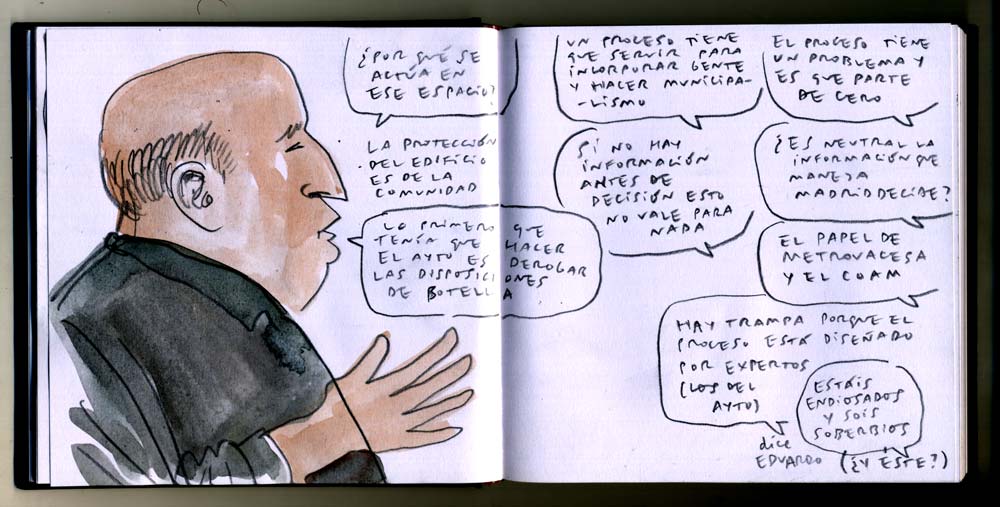 ¿POR QUÉ SE
ACTÚA EN
ESE ESPACIO?
LA PROTECCIÓN
DEL EDIFICIO
ES DE LA
COMUNIDAD
LO PRIMERO QUE
TENÍA QUE HACER
EL AYTO ES DEROGAR
LAS DISPOSICIONES
DE BOTELLA
UN PROCESO TIENE
QUE SERVIR PARA
INCORPORAR GENTE
Y HACER MUNICIPA-
-LISMO
EL PROCESO TIENE
UN PROBLEMA Y
ES QUE PARTE
DE CERO
SI NO HAY
INFORMACIÓN
ANTES DE
DECISIÓN ESTO
NO VALE PARA
NADA
¿ES NEUTRAL LA
INFORMACIÓN QUE
MANEJA
MADRID DECIDE?
EL PAPEL DE
METROVACESA
Y EL COAM
HAY TRAMPA PORQUE EL
PROCESO ESTÁ DISEÑADO
POR EXPERTOS
(LOS DEL
AYTO)
ESTÁIS
ENDIOSADOS
Y SOIS
SOBERBIOS
dice
EDUARDO
(¿Y ESTE?)